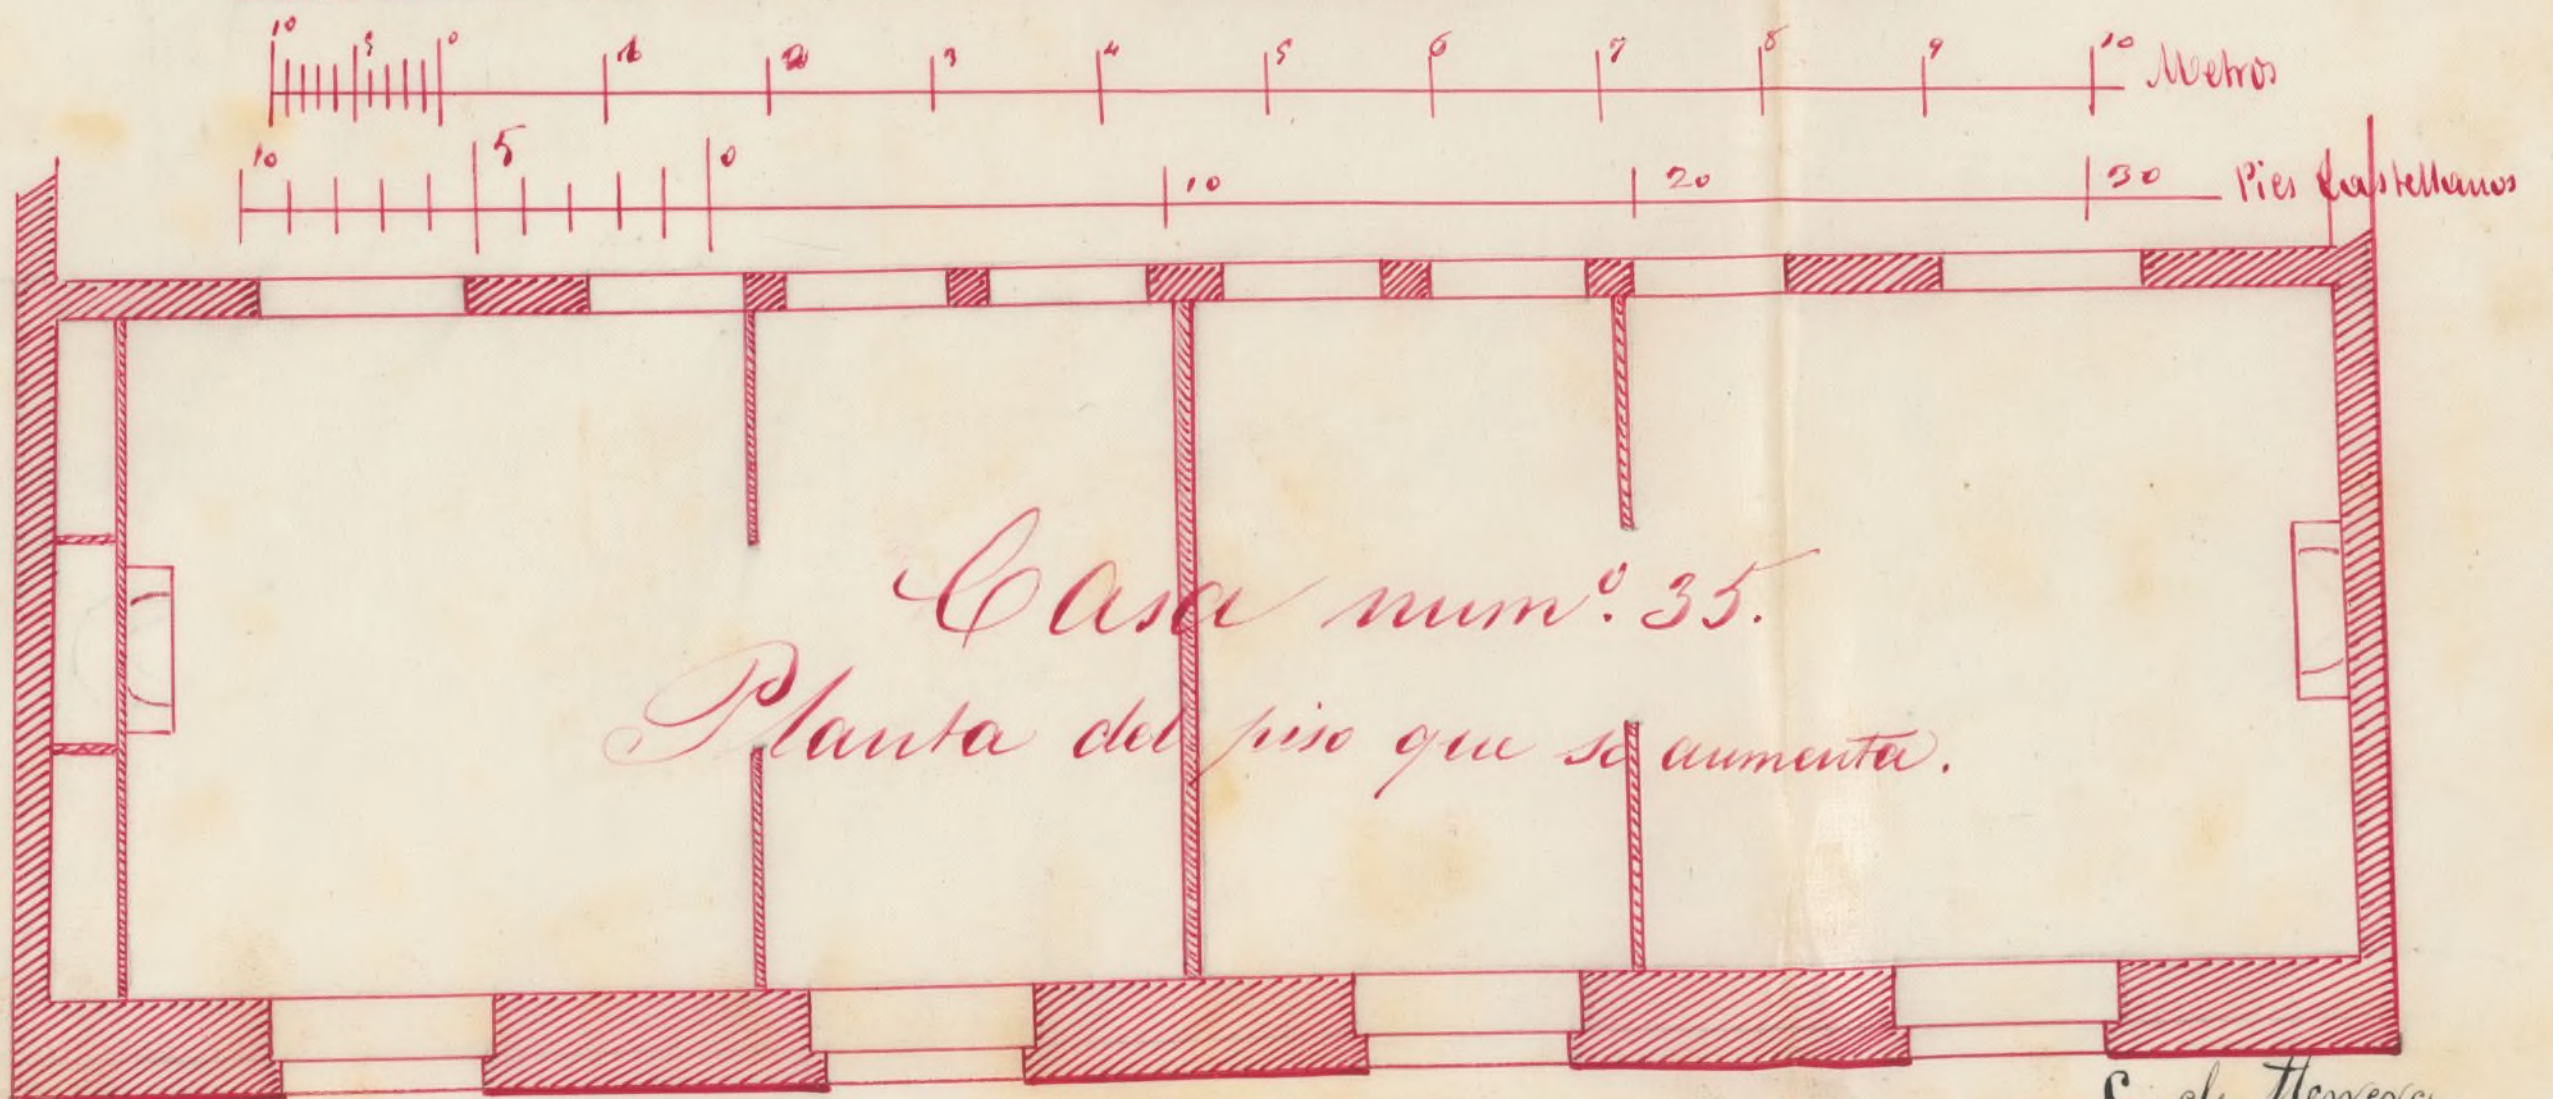 10 5 0 1 2 3 4 5 6 7 8 9 10 Metros
10 5 0 10 20 30 Pies Castellanos
Casa num.º 35.
Planta del piso que se aumenta.
de Herrera